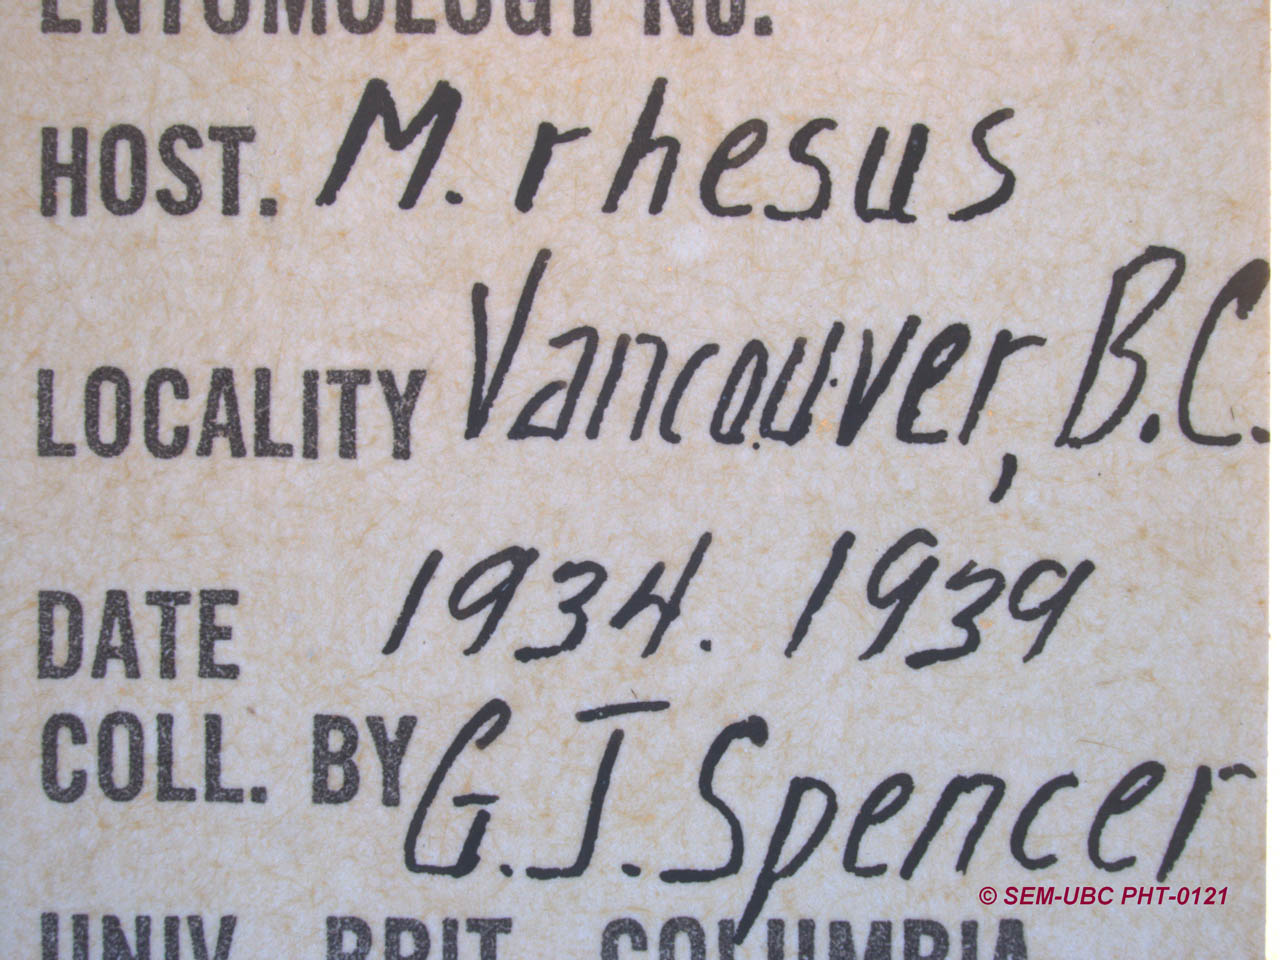 ENTOMOLOGY No.
HOST. M. rhesus
LOCALITY Vancouver, B.C.
DATE 1934. 1939
COLL. BY G.J. Spencer
© SEM-UBC PHT-0121
UNIV. BRIT. COLUMBIA